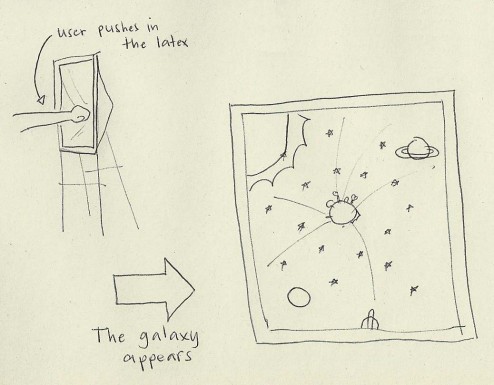 user pushes in
the latex
The galaxy
appears